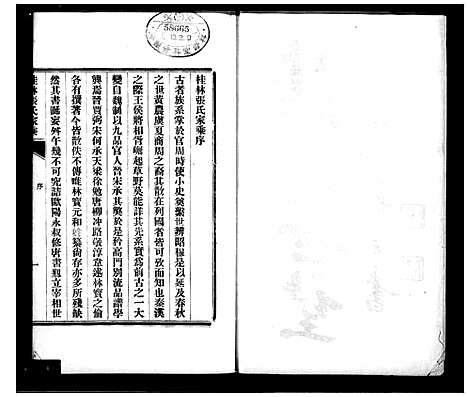 桂林張氏家乘序
古者族系掌於官周時使小史奠繫世辨昭穆是以延及春秋
之世黃農虞夏商周之裔其散在列國者皆可攷而知也秦漢
之際王侯將相奮起草野莫能詳其先系實爲前古之一大
變自魏制以九品官人晉宋承其獘於是矜高門別流品譜學
興焉晉賈弼宋何承天梁徐勉唐柳冲路敬淳韋述林寶之倫
各有撰著今皆散佚不傳唯林寶元和姓纂尚存亦多所殘缺
然其書誕妄舛午幾不可究詰歐陽永叔修唐書覬立宰相世
桂林張氏家乘
序
一
58665